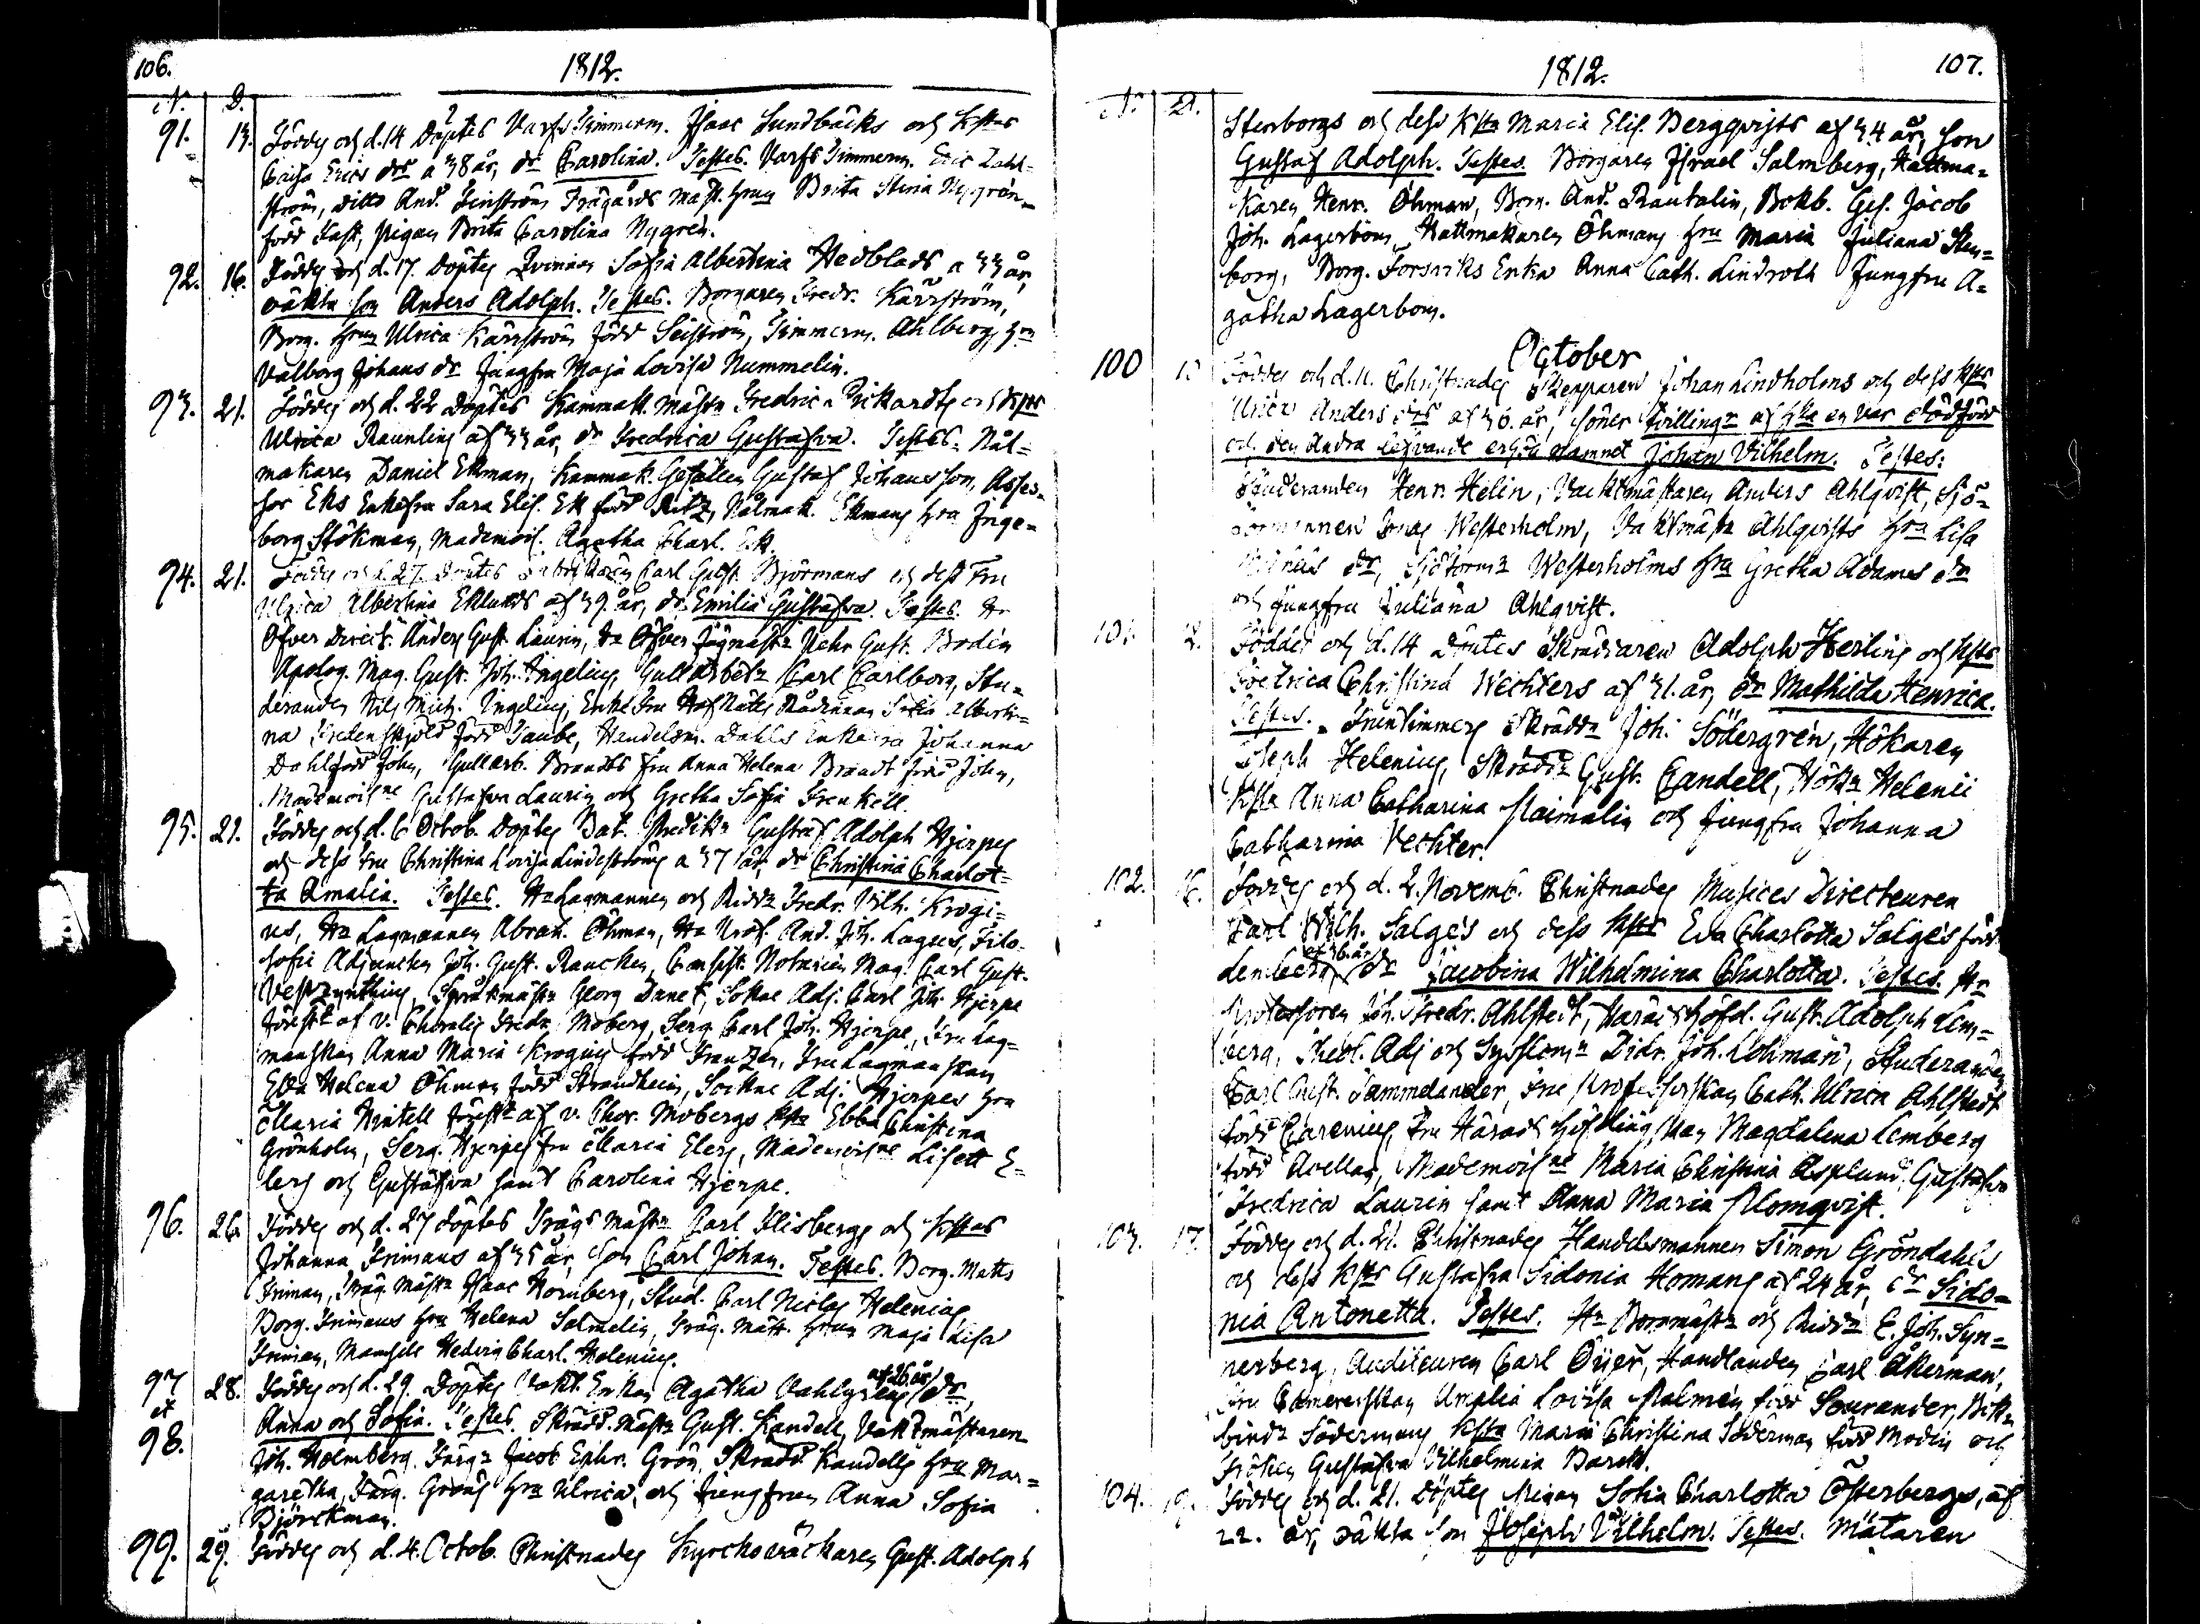 106.
1812.
N. D.
91. 13. Föddes och d. 14 Döptes Varfs Timmerm. Isaac Sundbäcks och Hstrs
Caisa Erics drs a 38 år, dr Carolina. Testes. Varfs Timmerm. Eric Zahl-
ström, ditto And. Finström Trägårds mäst. hrun Brita Stina Nygrén
född Fast, pigan Brita Carolina Nygrén.
92. 16. Föddes och d. 17. Döptes Qvinnan Sofia Albertina Hedblads a 33 år,
oäkta son Anders Adolph. Testes. Borgaren Fredr. Kärrström,
Borg. hrun Ulrica Kärrström född Seiström, Timmerm. Ahlberg, hru
Valborg Johans dr Jungfru Maja Lovisa Nummelin.
93. 21. Föddes och d. 22 Döptes Kammak. mästr Fredric Rickardts och Hstrs
Ulrica Raunlins af 33 år, dr Fredrica Gustafva. Testes. Nål-
makaren Daniel Ekman, Kammak. Gesällen Gustaf Johansson, Asses-
sor Eks Enkefru Sara Elis. Ek född Ritz, Nålmak. Ekmans hru Inge-
borg Stökman, Mademois. Agatha Charl. Ek.
94. 21. Föddes och d. 27. Döptes Carl Gust. Björmans och dess Fru
Ulrica Albertina Eklunds af 39 år, dr Emilia Gustafva. Testes. Hr
Öfver Direct. Anders Gust. Laurin, Hr Öfver Jägmästr Pehr Gust. Bodén
Apolog. Mag. Gust. Joh. Ingelius, Gullarbetr Carl Carlborg, Stu-
deranden Nils Mich. Ingelius, Enke Fru HofRätts Rådinnan Sofia Alberti-
na Fredenskjöld född Taube, Handelsm. Dahls Enkefru Johanna
Dahl född John, Gullarb. Brandts fru Anna Helena Brandt född John,
Mademoislne Gustafva Laurin och Gretha Sofia Frenkell.
95. 21. Föddes och d. 6 Octob. Döptes Bat. Predikn Gustaf Adolph Hjerpes
och dess Fru Christina Lovisa Lindeströms a 37 år, dr Christina Charlot-
ta Amalia. Testes. Hr Lagmannen och Riddr Fredr. Vilh. Krogi-
us, Hr Lagmannen Abrah. Öhman, Hr Prof. And. Joh. Lagus, Filo-
sofie Adjuncten Joh. Gust. Rancken, Consist. Notarien Mag. Carl Gust.
Weszynthius, Språkmästr Georg Danet, Sokne Adj. Carl Joh. Hjerpe
Förestr af v. Choralis Fredr. Moberg, Serg. Carl Joh. Hjerpe, Fru Lag-
manskan Anna Maria Krogius född Franzén, Fru Lagmanskan
Eva Helena Öhman född Strandheim, Sockne Adj. Hjerpes hru
Maria Wintell Förestr af v. Chor. Mobergs hru Ebba Christina
Grönholm, Serg. Hjerpes fru Maria Elers, Mademoislne Lisett E-
lers och Gustafva samt Carolina Hjerpe.
96. 26. Föddes och d. 27 döptes Trägs mästr Carl Flisbergs och Hstrs
Johanna Frimans af 35 år, son Carl Johan. Testes. Borg. Matts
Friman, Träg. mästr Isaac Hornberg, Stud. Carl Niclas Helenius
Borg. Frimans hru Helena Salmelin, Träg. mäst. hrun Maja Lisa
Friman, Mamsele Hedvig Charl. Helenius.
97 et 98. 28. Föddes och d. 29. Döptes Vakt. Enkan Agatha Vahlgrens af 26 år dr
Anna och Sofia. Testes. Skrädd. mästr Gust. Kandell, Vaktmästaren
Joh. Holmberg, Färgr Jacob Ephr. Grön, Skrädd. Kandells hru Mar-
garetha, Färg. Gröns hru Ulrica, och Jungfrun Anna Sofia
Björckman.
99. 29. Föddes och d. 4. Octob. Christnades Kyrckoväcktaren Gust. Adolph
1812.
107.
N. D.
Stenborgs och dess Hstr Maria Elis. Bergqvists af 34 år, son
Gustaf Adolph. Testes. Borgaren Israel Salmberg, Hattma-
karen Henr. Öhman, Borg. And. Rautalin, Bokb. Ges. Jacob
Joh. Lagerbom, Hattmakaren Öhmans hru Maria Juliana Sten-
borg, Borg. Forsviks Enka Anna Cath. Lindroth Jungfru A-
gatha Lagerbom.
October
100 10 Föddes och d. 11. Christnades Skepparen Johan Lindholms och dess Hstrs
Ulrica Anders drs af 36. år, söner tvillingr af hka en var dödfödd
och den andra lefvande erhöll namnet Johan Vilhelm. Testes:
Studeranden Henr. Helin, Vacktmästaren Anders Ahlqvist, Sjö-
tormannen Jonas Westerholm, Vaktmästr Ahlqvists hru Lisa
dr, Sjötormr Westerholms hru Gretha Adams dr
och Jungfru Juliana Ahlqvist.
101. 12. Föddes och d. 14 Döptes Skräddaren Adolph Herlins och Hstrs
Fredrica Christina Wechters af 31. år, dr Mathilda Henrica.
Testes. Fruntimmers Skräddr Joh. Södergrén, Hökaren
Steph Helenius, Skräddr Gust. Candell, Hökr Helenii
Hstr Anna Catharina Maimalin och Jungfru Johanna
Catharina Vechter.
102. 16. Föddes och d. 2. Novemb. Christnades Musices Directeuren
Carl Wilh. Salgés och dess Hstrs Eva Charlotta Salgés född
Lemberg af 36 år dr Jacobina Wilhelmina Charlotta. Testes. Hr
Professoren Joh. Fredr. Ahlstedt, Häradshöfd. Gust. Adolph Lem-
berg, Theol. Adj och Sysslomn Didr. Joh. Lohman, Studeranden
Carl Gust. Tammelander, Fru Professorskan Cath. Ulrica Ahlstedt
född Carenius, Fru Häradshöfdingskan Magdalena Lemberg
född Avellan, Mademoislne Maria Christina Asplund, Gustafva
Fredrica Laurin samt Anna Maria Blomqvist.
103. 17. Föddes och d. 21. Christnades Handelsmannen Simon Gröndahls
och dess Hstrs Gustafva Sidonia Homans af 24 år, dr Sido-
nia Antonetta. Testes. Hr Borgmästr och Riddr E. Joh. Syn-
nerberg, Auditeuren Carl Öijer, Handlanden Carl Åkerman,
Fru Camererskan Amalia Lovisa Malmén född Sourander, Bok-
bindr Södermans Hstr Maria Christina Söderman född Modin och
Fröken Gustafva Vilhelmina Barck.
104. 19. Föddes och d. 21. Döptes Pigan Sofia Charlotta Österbergs, af
22. år, oäkta son Joseph Vilhelm. Testes. Mätaren